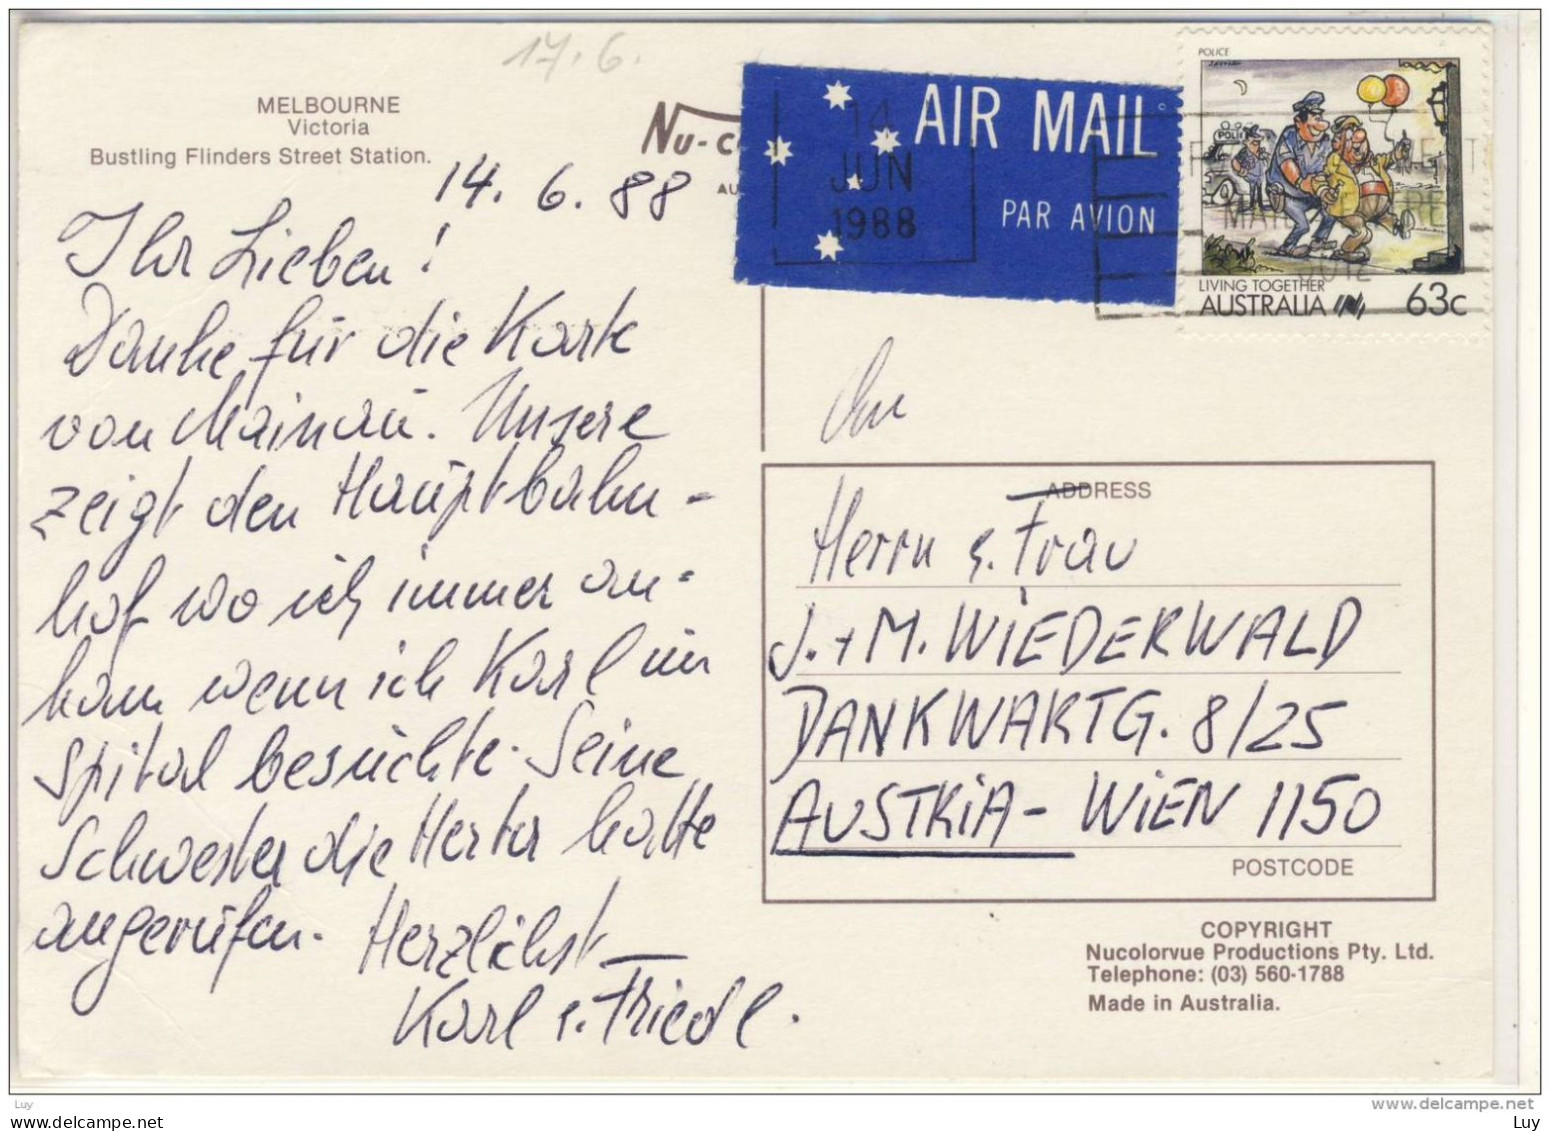 17.6.
MELBOURNE
Victoria
Bustling Flinders Street Station.
NU-C
AU
14. 6. 88
Ihr Lieben!
Danke für die Karte
von Mainau. Unsere
zeigt den Hauptbahn-
hof wo ich immer an-
kam wenn ich Karl im
Spital besuchte. Seine
Schwester die Herta hatte
angerufen. Herzlichst
Karl u. Friedl.
AIR MAIL
PAR AVION
14
JUN
1988
POLICE
POLI
MAIL
LIVING TOGETHER
AUSTRALIA 63c
An
ADDRESS
Herrn u. Frau
J. + M. WIEDERWALD
DANKWARTG. 8/25
AUSTRIA - WIEN 1150
POSTCODE
COPYRIGHT
Nucolorvue Productions Pty. Ltd.
Telephone: (03) 560-1788
Made in Australia.
Luy
www.delcampe.net
Luy
Luy